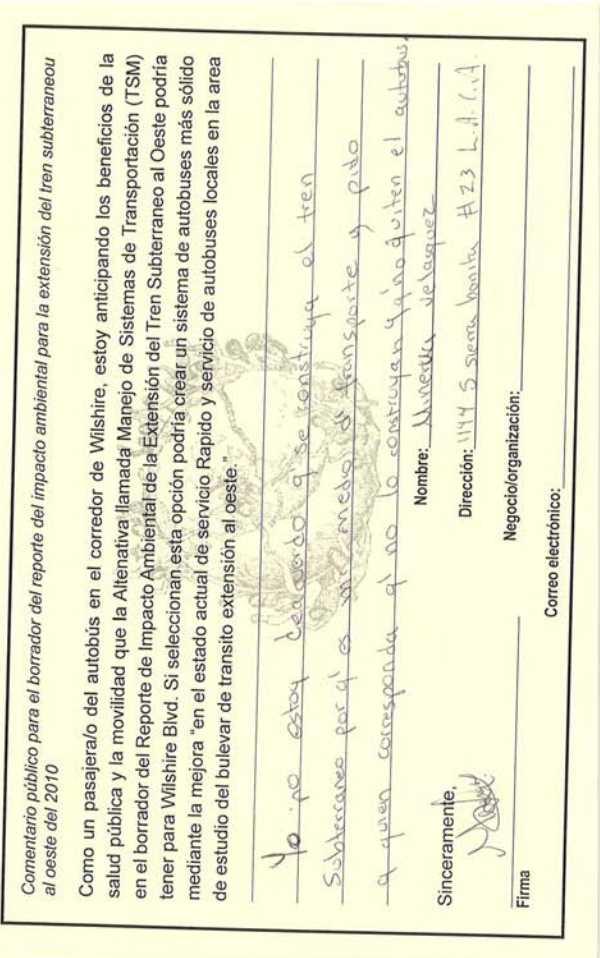 Comentario público para el borrador del reporte del impacto ambiental para la extensión del tren subterraneou
al oeste del 2010
Como un pasajera/o del autobús en el corredor de Wilshire, estoy anticipando los beneficios de la
salud pública y la movilidad que la Altenativa llamada Manejo de Sistemas de Transportación (TSM)
en el borrador del Reporte de Impacto Ambiental de la Extensión del Tren Subterraneo al Oeste podría
tener para Wilshire Blvd. Si seleccionan esta opción podría crear un sistema de autobuses más sólido
mediante la mejora "en el estado actual de servicio Rapido y servicio de autobuses locales en la area
de estudio del bulevar de transito extensión al oeste."
Yo no estoy deacuerdo q' se construya el tren
Subterraneo por q' es mi medio di transporte y pido
a quien corresponda q' no lo construyan y a no quiten el autobus.
Sinceramente,
Nombre: Minerva Velasquez
Dirección: 1144 S sierra bonita #23 L.A. C.A.
Firma
Negocio/organización:
Correo electrónico: